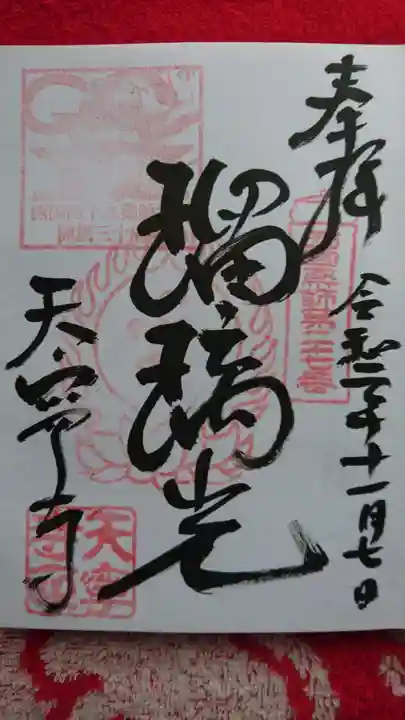 奉拝
令和二年十一月七日
瑠璃光
天寧寺
天寧